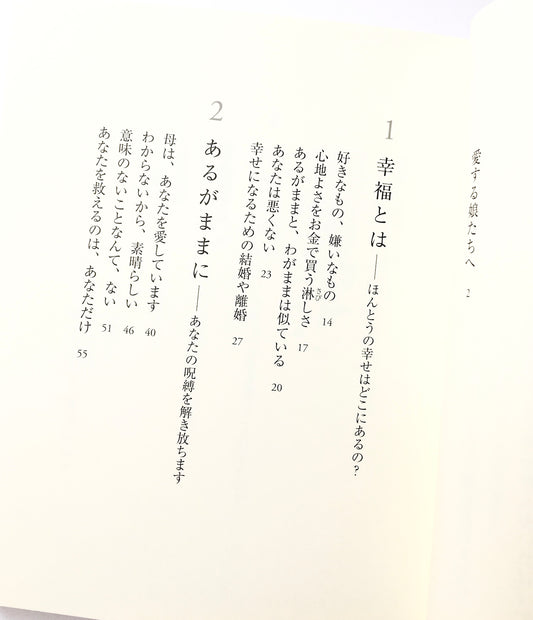 愛する娘たちへ 2
1 幸福とは――ほんとうの幸せはどこにあるの?
好きなもの、嫌いなもの 14
心地よさをお金で買う淋しさ 17
さび
あるがままと、わがままは似ている 20
あなたは悪くない 23
幸せになるための結婚や離婚 27
2 あるがままに――あなたの呪縛を解き放ちます
母は、あなたを愛しています 40
わからないから、素晴らしい 46
意味のないことなんて、ない 51
あなたを救えるのは、あなただけ 55